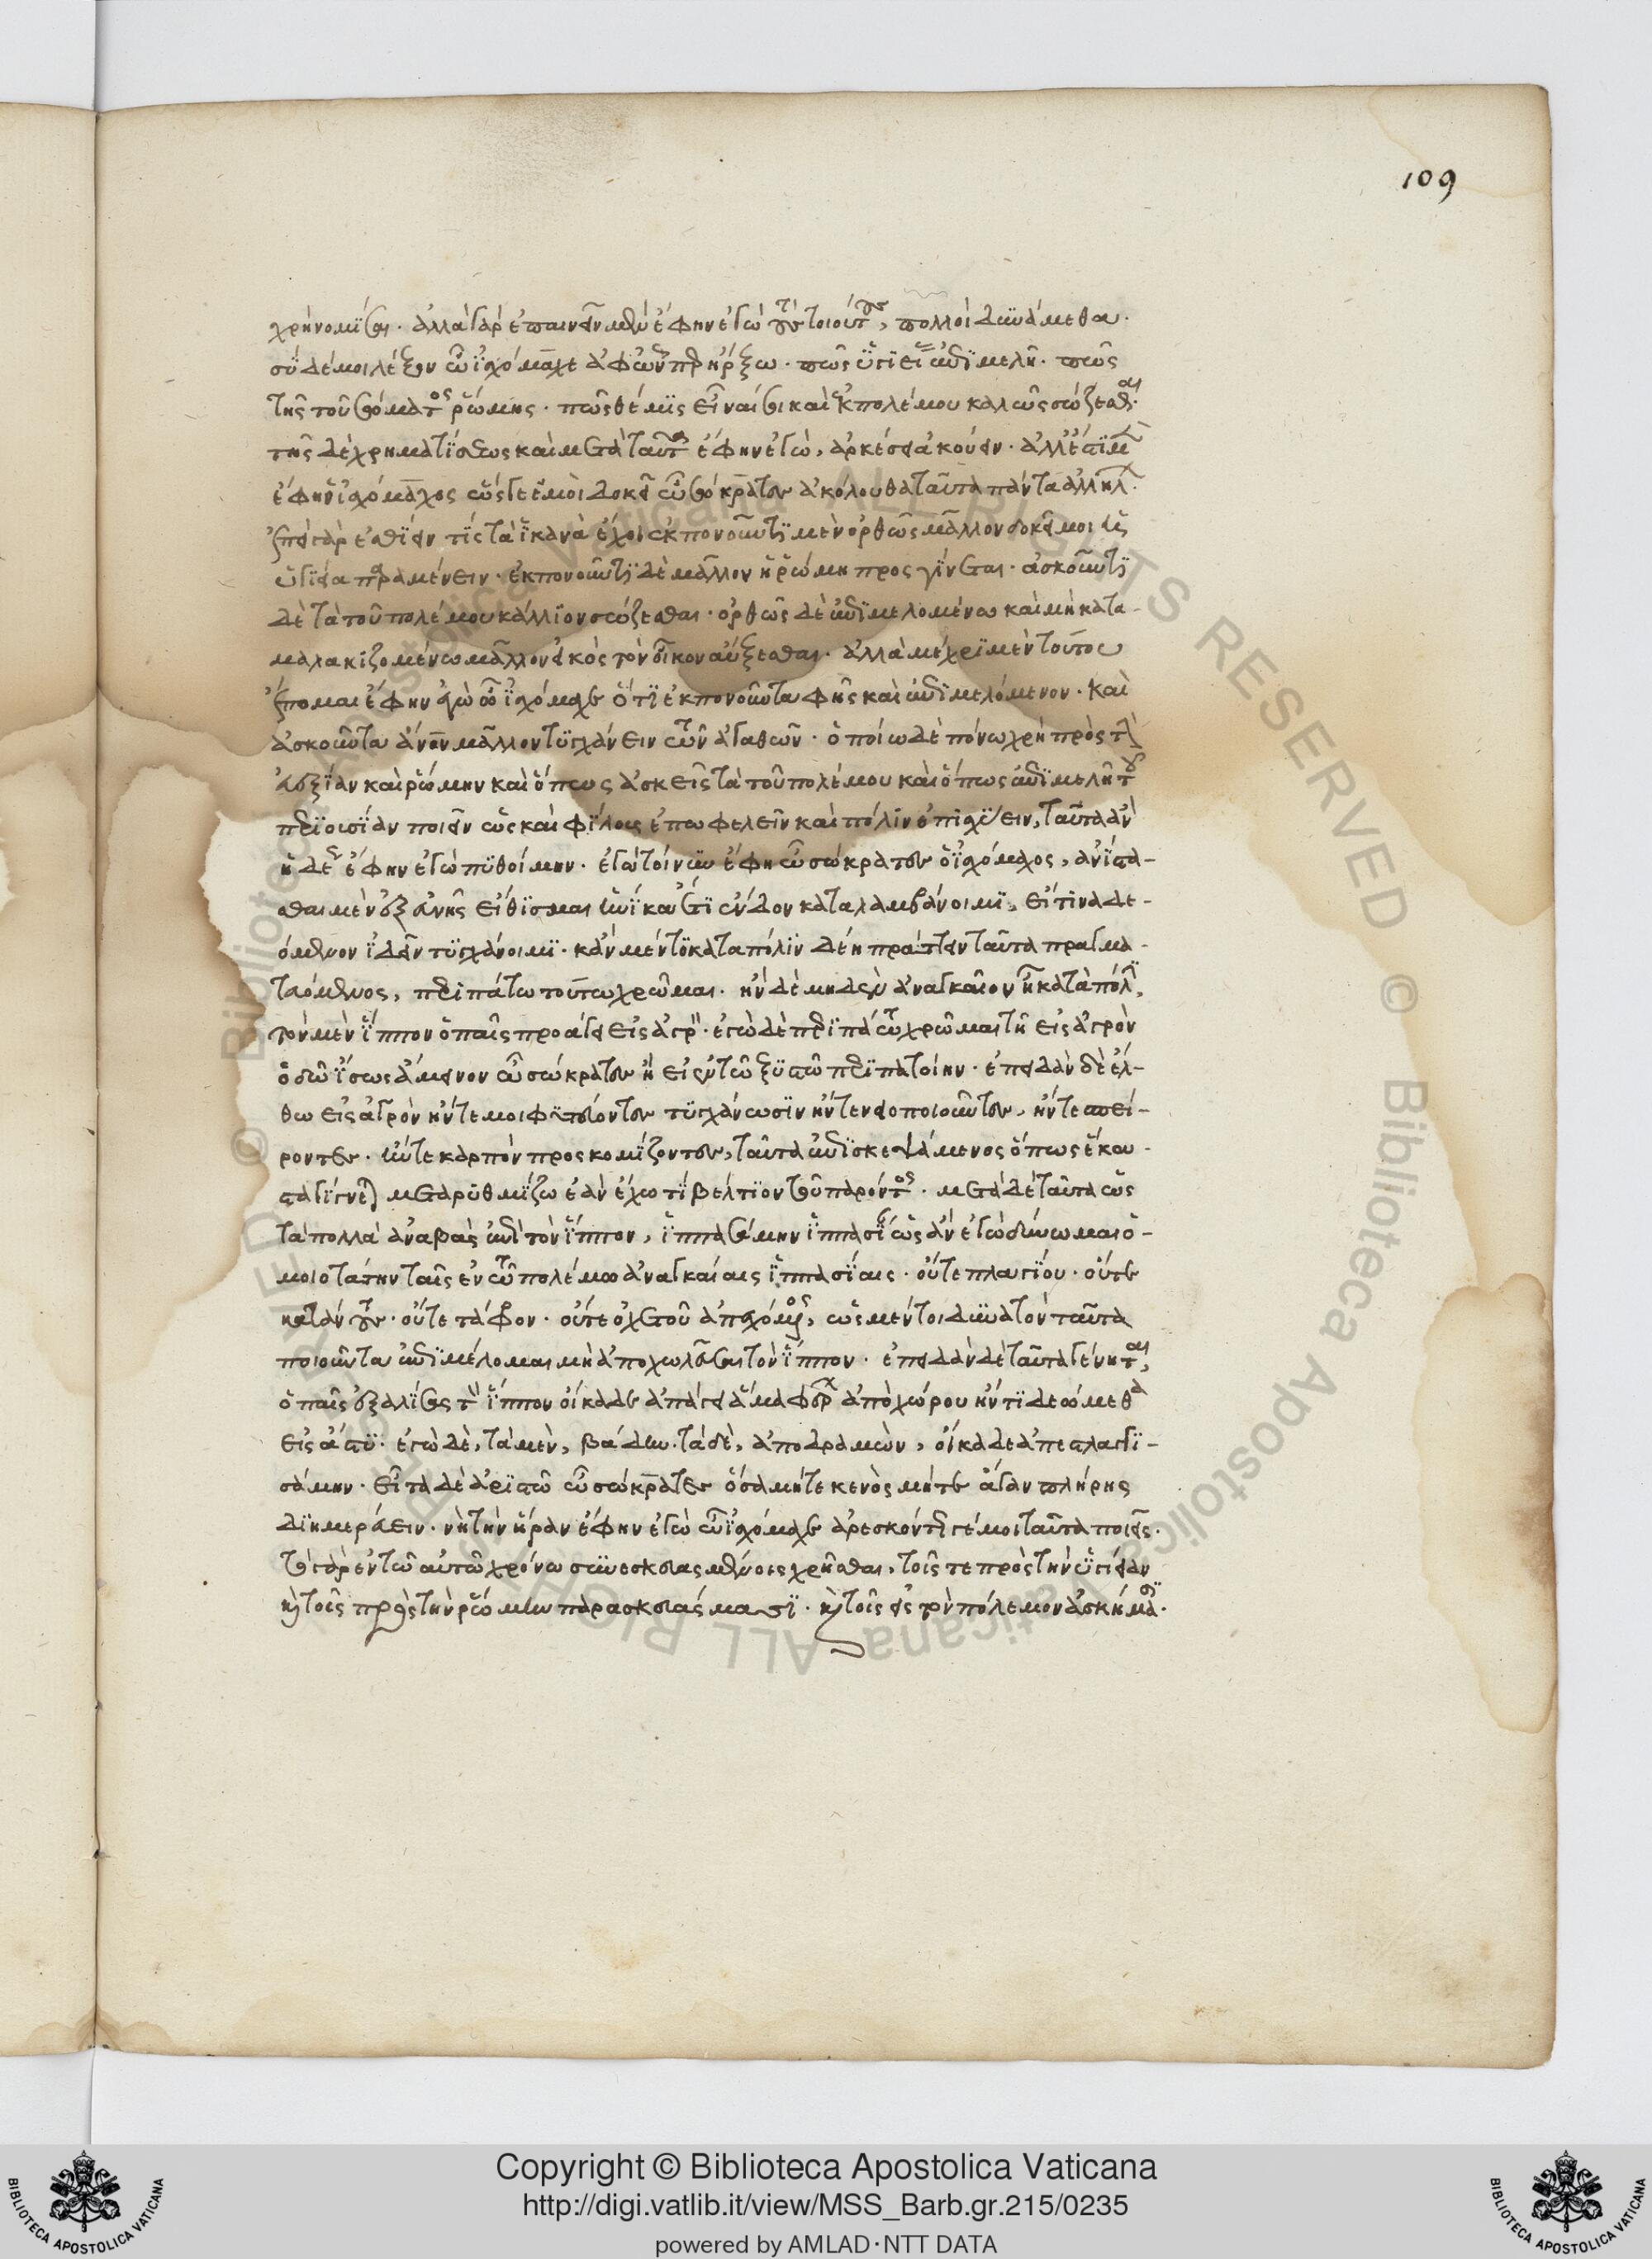 109
χρὴ νομίσαι. ἀλλὰ γὰρ ἐπαινεῖν μὲν ἔφην ἐγὼ τοὺς τοιούτους, πολλοὶ δυνάμεθα.
σὺ δέ μοι λέξον ὦ ἰσχόμαχε ἀφ' ὧνπερ ἤρξω. πῶς ὑγιείας ἐπιμελῇ. πῶς
τῆς τοῦ σώματος ῥώμης. πῶς θέμις εἶναί σοι καὶ ἐκ πολέμου καλῶς σώζεσθαι.
τῆς δὲ χρηματίσεως καὶ μετὰ ταῦτα ἔφην ἐγὼ, ἀρκέσει ἀκούειν. ἀλλ' ἔστι μὲν
ἔφη ὁ ἰσχόμαχος ὥς γε ἐμοὶ δοκεῖ ὦ σώκρατες ἀκόλουθα ταῦτα πάντα ἀλλήλων.
ἐπεὶ γὰρ ἐσθίειν τις τὰ ἱκανὰ ἔχοι ἐκπονοῦντι μὲν ὀρθῶς μᾶλλον δοκεῖ μοι ἡ
ὑγίεια παραμένειν. ἐκπονοῦντι δὲ μᾶλλον ἡ ῥώμη προσγίνεσθαι. ἀσκοῦντι
δὲ τὰ τοῦ πολέμου κάλλιον σώζεσθαι. ὀρθῶς δὲ ἐπιμελομένω καὶ μὴ κατα-
μαλακιζομένω μᾶλλον εἰκὸς τὸν οἶκον αὔξεσθαι. ἀλλὰ μέχρι μὲν τούτου
ἕπομαι ἔφην ἐγὼ ὦ ἰσχόμαχε ὅτι ἐκπονοῦντα φῂς καὶ ἐπιμελόμενον. καὶ
ἀσκοῦντα ἄνθρωπον μᾶλλον τυγχάνειν τῶν ἀγαθῶν. ὁποίω δὲ πόνω χρῇ πρὸς τὴν
εὐεξίαν καὶ ῥώμην καὶ ὅπως ἀσκεῖς τὰ τοῦ πολέμου καὶ ὅπως ἐπιμελῇ τοῦ
περιουσίαν ποιεῖν ὡς καὶ φίλους ἐπωφελεῖν καὶ πόλιν ἐπισχύειν, ταῦτα ἂν
ἡδέως ἔφην ἐγὼ πυθοίμην. ἐγὼ τοίνυν ἔφη ὦ σώκρατες ὁ ἰσχόμαχος, ἀνίστα-
σθαι μὲν ἐξ εὐνῆς εἴθισμαι ἡνίκα ἔτι ἔνδον καταλαμβάνοιμι, εἴ τινα δε-
όμενον ἰδεῖν τυγχάνοιμι. κἂν μέν τι κατὰ πόλιν δέῃ πράττειν ταῦτα πραγμα-
τευόμενος, περιπάτω τούτω χρῶμαι. ἢν δὲ μηδὲν ἀναγκαῖον ᾖ κατὰ πόλιν,
τὸν μὲν ἵππον ὁ παῖς προάγει εἰς ἀγρόν. ἐγὼ δὲ περιπάτω χρῶμαι τῇ εἰς ἀγρὸν
ὁδῶ ἴσως ἄμεινον ὦ σώκρατες ἢ εἰ ἐν τῶ ξυστῶ περιπατοίην. ἐπειδὰν δὲ ἔλ-
θω εἰς ἀγρὸν ἤν τέ μοι φυτεύοντες τυγχάνωσιν ἤν τε νειοποιοῦντες, ἤν τε σπεί-
ροντες. ἤν τε καρπὸν προσκομίζοντες, ταῦτα ἐπισκεψάμενος ὅπως ἕκα-
στα γίγνεται μεταρυθμίζω ἐὰν ἔχω τι βέλτιον τοῦ παρόντος. μετὰ δὲ ταῦτα ὡς
τὰ πολλὰ ἀναβὰς ἐπὶ τὸν ἵππον, ἱππασάμην ἱππασίαν ὡς ἂν ἐγὼ δύνωμαι ὁ-
μοιοτάτην ταῖς ἐν τῶ πολέμω ἀναγκαίαις ἱππασίαις. οὔτε πλαγίου. οὔτε
κατάντους. οὔτε τάφρου. οὔτε ὀχετοῦ ἀπεχόμενος, ὡς μέντοι δυνατὸν ταῦτα
ποιοῦντα ἐπιμέλομαι μὴ ἀποχωλεῦσαι τὸν ἵππον. ἐπειδὰν δὲ ταῦτα γένηται,
ὁ παῖς ἐξαλίσας τὸν ἵππον οἴκαδε ἀπάγει ἅμα φέρων ἀπὸ χώρου ἤν τι δεώμεθα
εἰς ἄστυ. ἐγὼ δὲ, τὰ μὲν, βάδην. τὰ δὲ, ἀποδραμὼν, οἴκαδε ἀπεστλεγγι-
σάμην. εἶτα δὲ ἀριστῶ ὦ σώκρατες ὅσα μήτε κενὸς μήτε ἄγαν πλήρης
διημερεύειν. νὴ τὴν ἥραν ἔφην ἐγὼ ὦ ἰσχόμαχε ἀρεσκόντως γέ μοι ταῦτα ποιεῖς.
τὸ γὰρ ἐν τῶ αὐτῶ χρόνω συνεσκευασμένοις χρῆσθαι, τοῖς τε πρὸς τὴν ὑγίειαν
καὶ τοῖς πρὸς τὴν ῥώμην παρασκευάσμασι. καὶ τοῖς εἰς τὸν πόλεμον ἀσκήμασι.
Copyright © Biblioteca Apostolica Vaticana
http://digi.vatlib.it/view/MSS_Barb.gr.215/0235
powered by AMLAD·NTT DATA